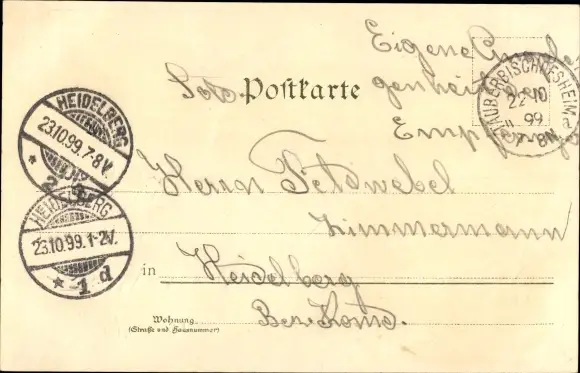 Eigene Ange
Sold. Postkarte genheit des
Empfängers
HEIDELBERG
23.10.99.7-8V.
* 2
HEIDELBERG
23.10.99.1-2V.
* 1 d
TAUBERBISCHOFSHEIM
22 10
99
7-8N
Herrn Feldwebel
Zimmermann
in Heidelberg
Wohnung Bez. Komd.
(Straße und Hausnummer)